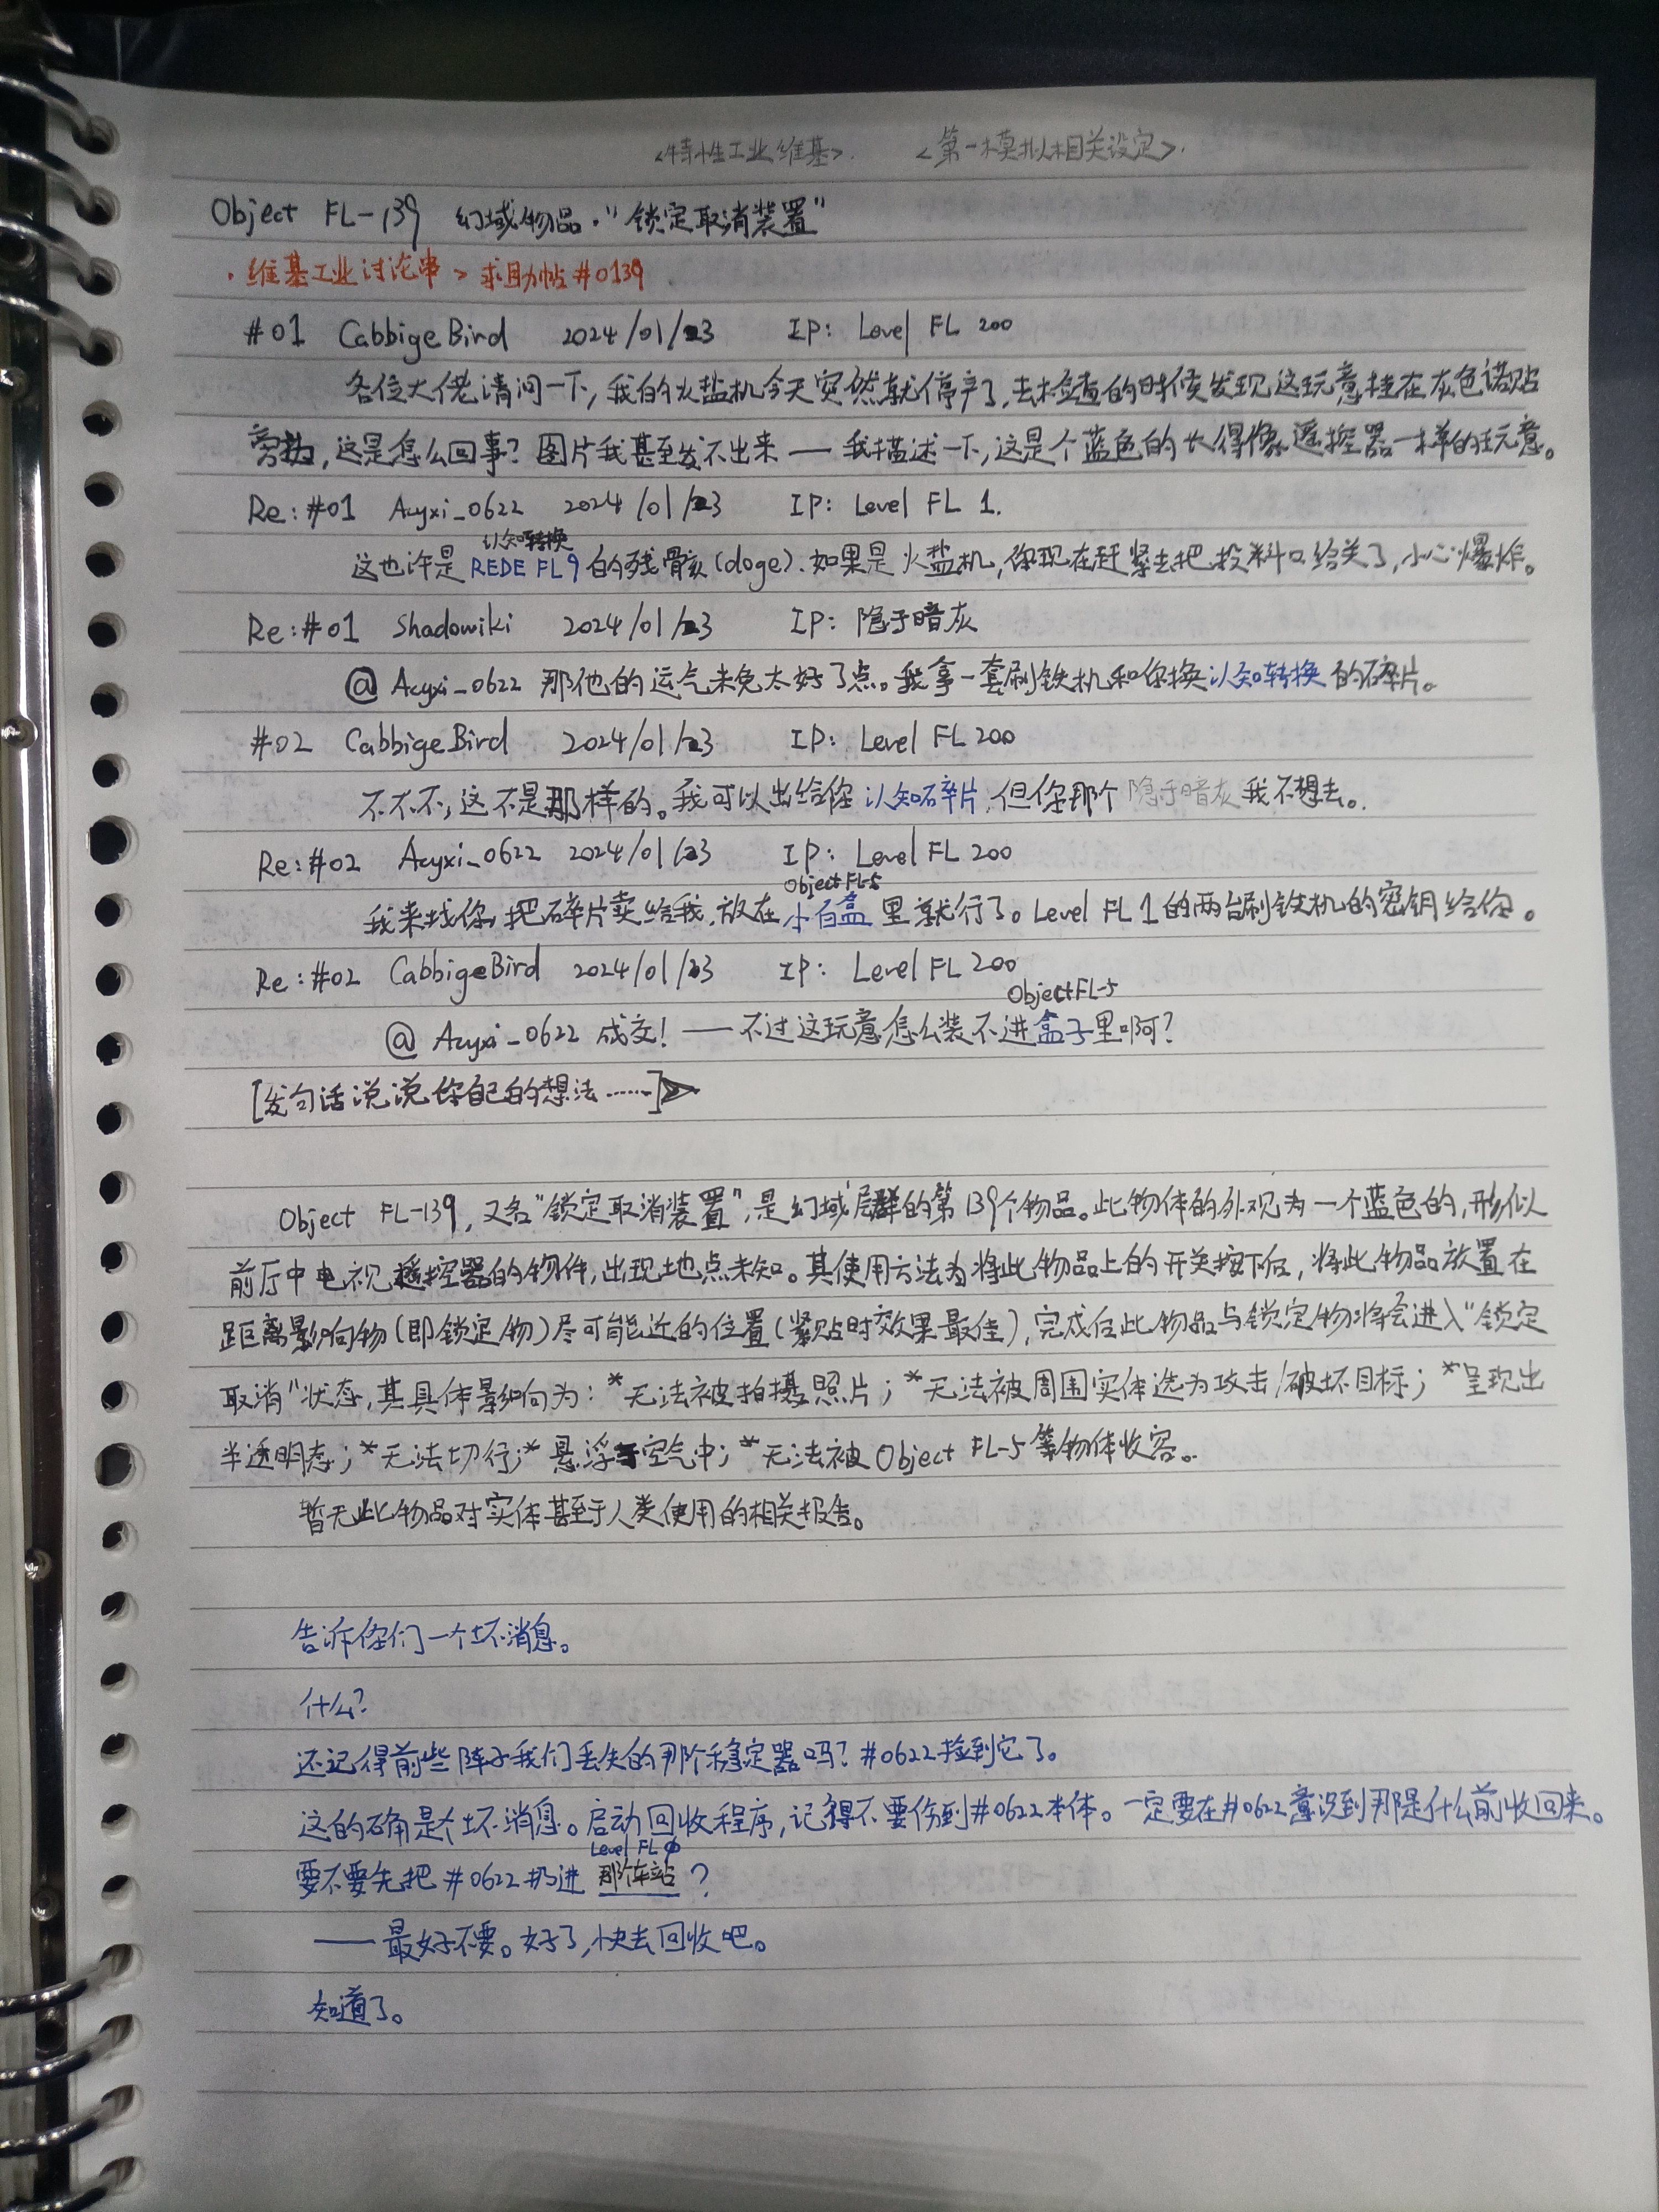 <特性工业维基>. <第一模拟相关设定>.
Object FL-139 幻域物品·"锁定取消装置"
·维基工业讨论串 > 求助帖#0139
#01 CabbigeBird 2024/01/23 IP: Level FL 200
各位大佬请问一下,我的火盐机今天突然就停产了,去检查的时候发现这玩意挂在灰色诺贴
旁边,这是怎么回事?图片我甚至发不出来——我描述一下,这是个蓝色的长得像遥控器一样的玩意。
Re:#01 Acyxi_0622 2024/01/23 IP: Level FL 1.
认知转换
这也许是REDE FL 9的残骸(doge).如果是火盐机,你现在赶紧去把投料口给关了,小心爆炸。
Re:#01 Shadowiki 2024/01/23 IP: 隐于暗灰
@ Acyxi_0622 那他的运气未免太好了点。我拿一套刷铁机和你换认知转换的碎片。
#02 CabbigeBird 2024/01/23 IP: Level FL 200
不不不,这不是那样的。我可以出给你认知碎片,但你那个隐于暗灰我不想去。
Re:#02 Acyxi_0622 2024/01/23 IP: Level FL 200
Object FL-5
我来找你,把碎片卖给我,放在小白盒里就行了。Level FL 1的两台刷铁机的密钥给你。
Re:#02 CabbigeBird 2024/01/23 IP: Level FL 200
Object FL-5
@ Acyxi_0622 成交!——不过这玩意怎么装不进盒子里啊?
[发句话说说你自己的想法……]➣
Object FL-139,又名"锁定取消装置",是幻域层群的第139个物品。此物体的外观为一个蓝色的,形似
前厅中电视遥控器的物件,出现地点未知。其使用方法为将此物品上的开关按下后,将此物品放置在
距离影响物(即锁定物)尽可能近的位置(紧贴时效果最佳),完成后此物品与锁定物将会进入"锁定
取消"状态,其具体影响为:*无法被拍摄照片;*无法被周围实体选为攻击/破坏目标;*呈现出
半透明态;*无法切行;*悬浮于空气中;*无法被Object FL-5等物体收容。
暂无此物品对实体甚至于人类使用的相关报告。
告诉你们一个坏消息。
什么?
还记得前些阵子我们丢失的那个稳定器吗?#0622捡到它了。
这的确是个坏消息。启动回收程序,记得不要伤到#0622本体。一定要在#0622意识到那是什么前收回来。
Level FL 0
要不要先把#0622扔进那个车站?
——最好不要。好了,快去回收吧。
知道了。